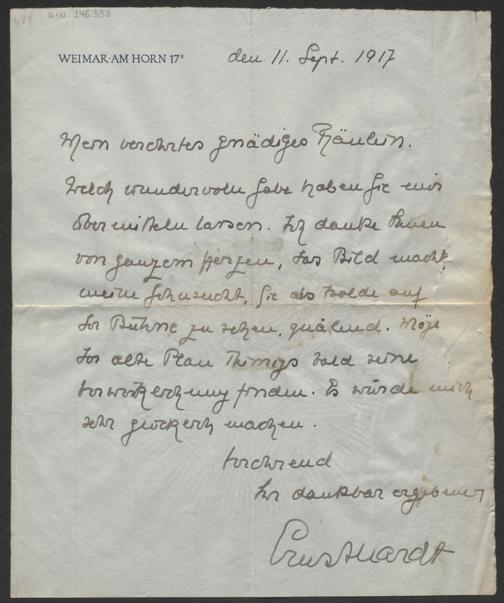 H.I.N. 246.358
WEIMAR·AM HORN 17ᵃ
den 11. Sept. 1917
Mein verehrtes gnädiges Fräulein.
Welch wundervolle Gabe haben Sie mir
übermitteln lassen. Ich danke Ihnen
von ganzem Herzen, das Bild macht
meine Sehnsucht, Sie als Isolde auf
der Bühne zu sehen, quälend. Möge
der alte Plan Thimigs bald seine
Verwirklichung finden. Es würde mich
sehr glücklich machen.
Verehrend
Ihr dankbar ergebener
Ernst Hardt